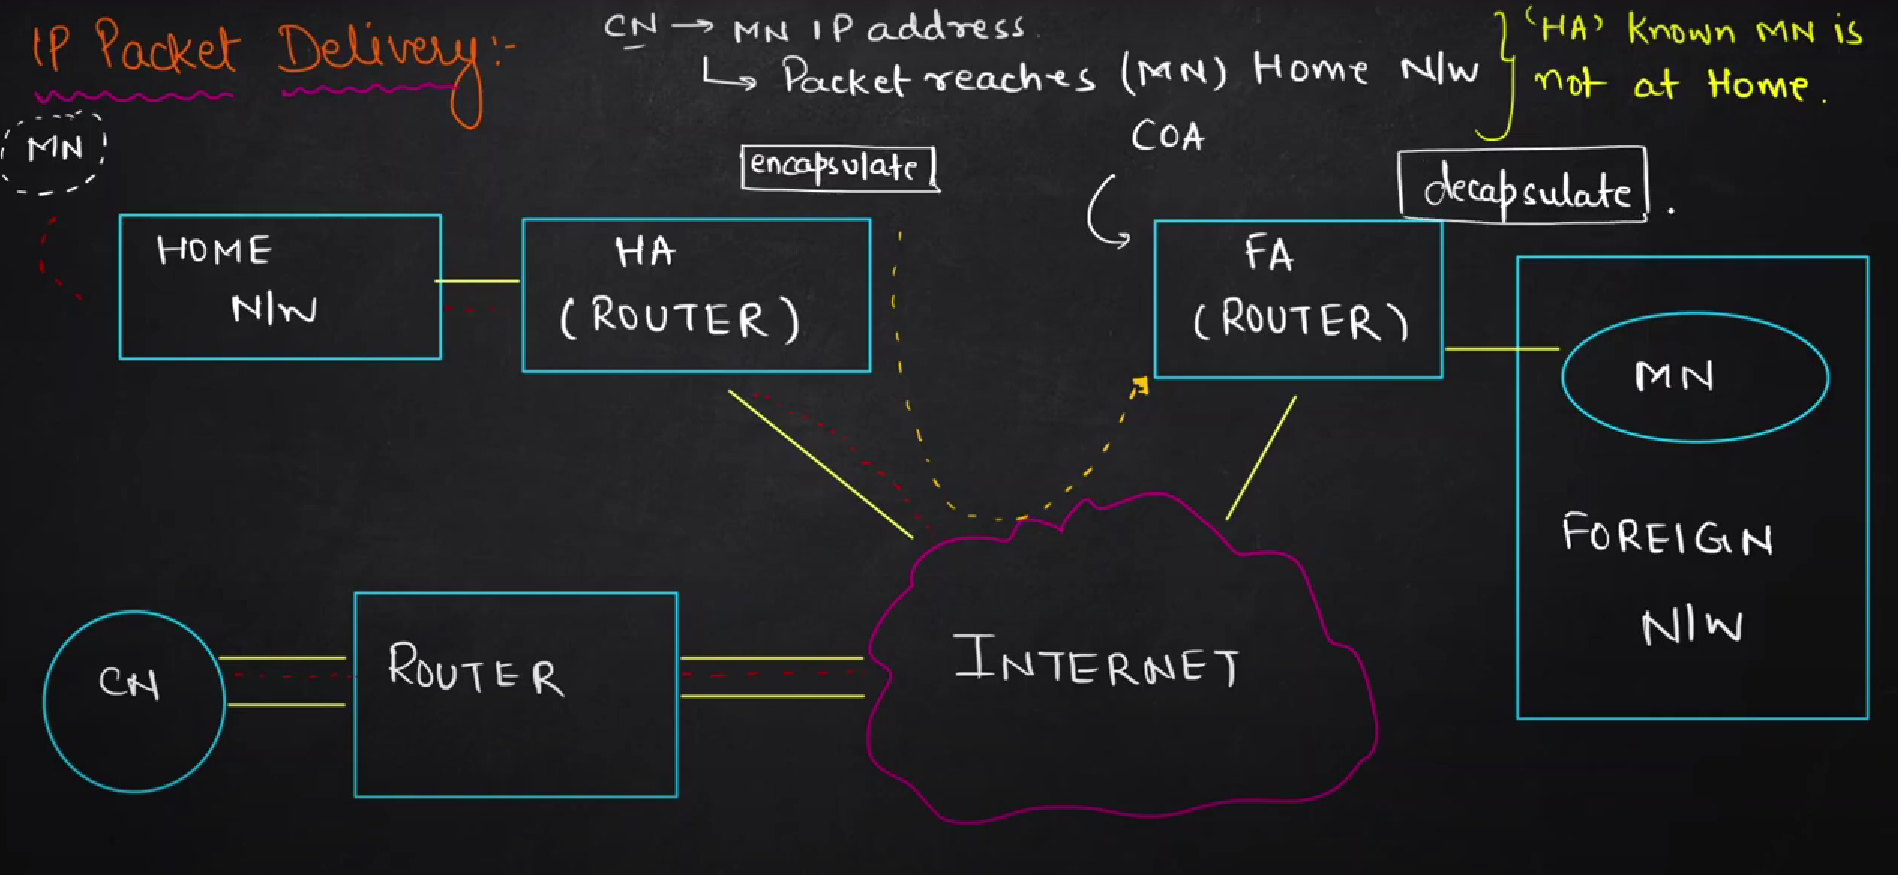 IP Packet Delivery:-
CN → MN IP address.
↳ Packet reaches (MN) Home N/W
'HA' Known MN is
not at Home.
MN
encapsulate
COA
decapsulate.
HOME
N/W
HA
(ROUTER)
FA
(ROUTER)
MN
FOREIGN
N/W
CN
ROUTER
INTERNET